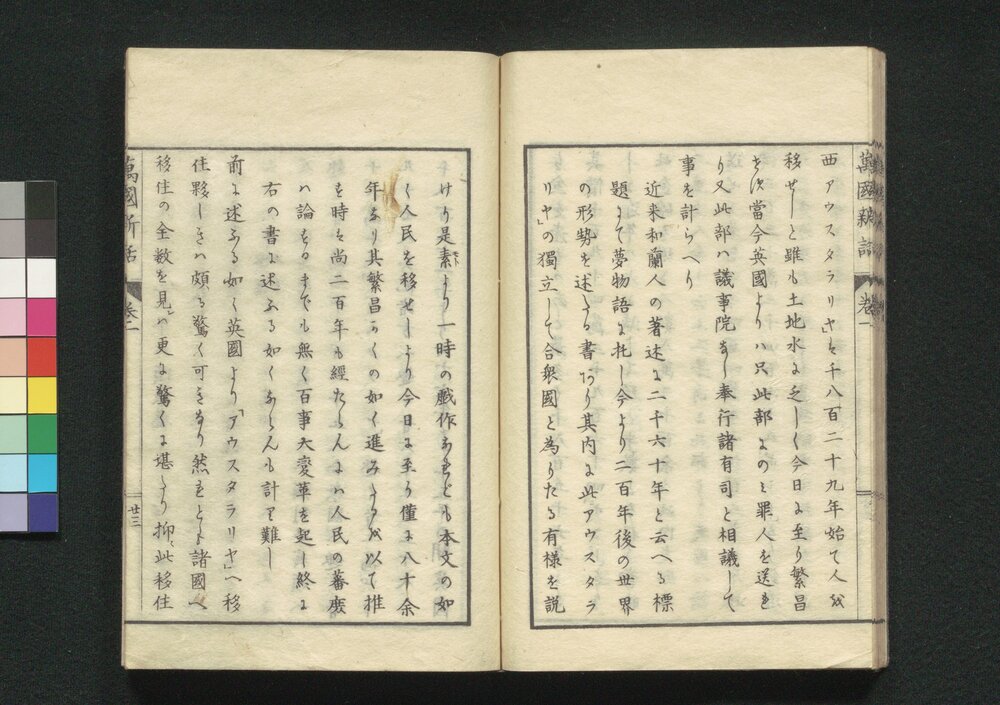 萬國新話 卷二
西アウスタラリヤは千八百二十九年始て人民を
移せしと雖も土地水に乏しく今日に至り繁昌
せず當今英國よりハ只此部にのミ罪人を送る
り又此部ハ議事院なし奉行諸有司と相議して
事を計らへり
近来和蘭人の著述に二千六十年と云へる標
題にて夢物語に托し今より二百年後の世界
の形勢を述たる書あり其内に此アウスタラ
リヤの獨立して合衆國と為りたる有様を説
けり是素より一時の戲作なれども本文の如
く人民を移せしより今日に至り僅に八十余
年なり其繁昌かくの如く進みたるを以て推
す時は尚二百年も經たらんにハ人民の蕃庶
ハ論するまでも無く百事大變革を起し終に
右の書に述ふる如くならんも計り難し
前に述ふる如く英國より「アウスタラリヤ」へ移
住夥しきハ頗る驚く可きなり然れとも諸國へ
移住の全数を見れハ更に驚くに堪たり抑此移住
萬國新話 卷二 廿三